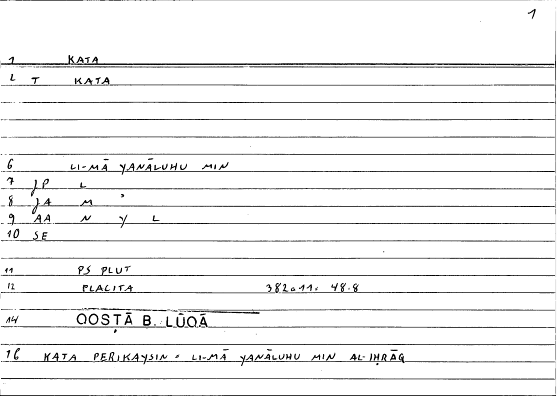 1
1 KATA
2 T KATA
6 LI-MĀ YANĀLUHU MIN
7 JP L
8 JA M ʾ
9 AA N Y L
10 SE
11 PS PLUT
12 PLACITA 382a11. 48.8
14 QOSṬĀ B. LŪQĀ
16 KATA PERIKAYSIN. LI-MĀ YANĀLUHU MIN AL-IḤRĀQ